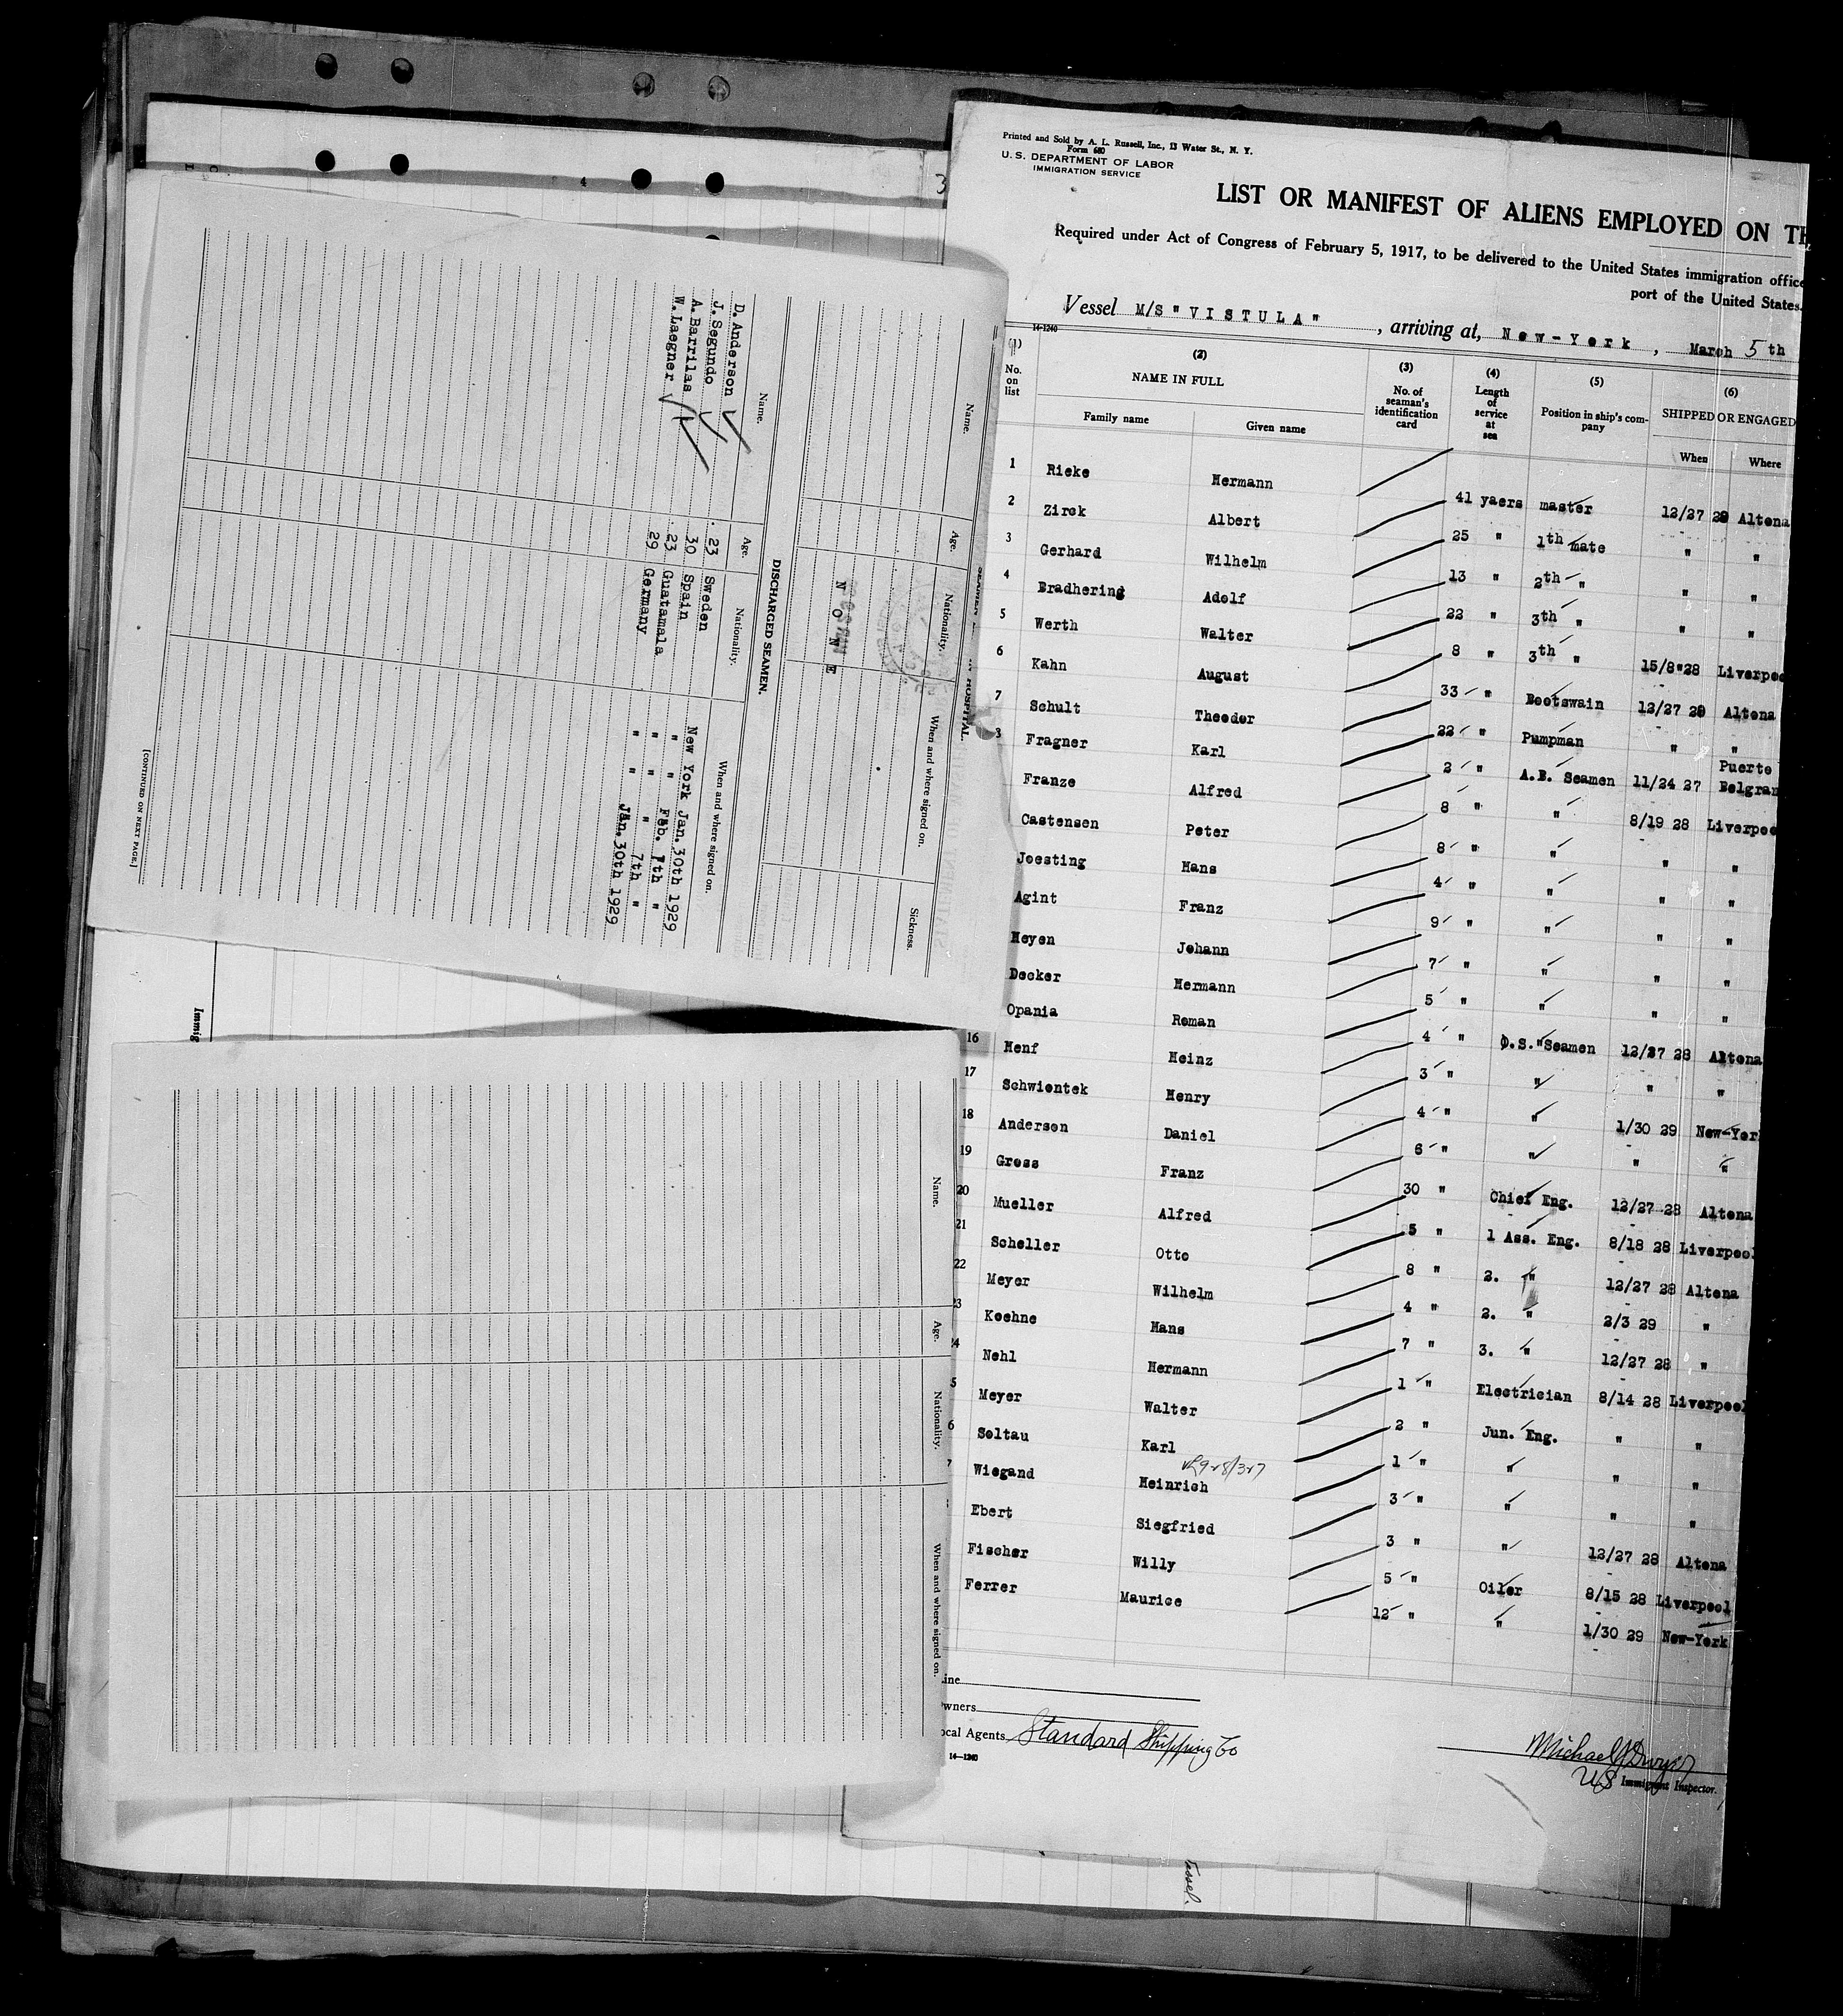 Printed and Sold by A. L. Russell, Inc., 13 Water St., N. Y.
Form 680
U. S. DEPARTMENT OF LABOR
IMMIGRATION SERVICE
LIST OR MANIFEST OF ALIENS EMPLOYED ON TH
Required under Act of Congress of February 5, 1917, to be delivered to the United States immigration office
port of the United States.
Vessel M/S "VISTULA", arriving at, New-York, March 5th
14-1240
(1) (2) (3) (4) (5) (6)
No. on list NAME IN FULL No. of seaman's identification card Length of service at sea Position in ship's company SHIPPED OR ENGAGED
Family name Given name When Where
1 Rieke Hermann 41 yaers master 12/27 28 Altona
2 Zirck Albert 25 " 1th mate " "
3 Gerhard Wilhelm 13 " 2th " " "
4 Bradhering Adolf 22 " 3th " " "
5 Werth Walter 8 " 3th " 15/8 28 Liverpoo
6 Kahn August 33 " Bootswain 12/27 28 Altona
7 Schult Theodor 22 " Pumpman " "
8 Fragner Karl 2 " A.B. Seamen 11/24 27 Puerto Belgran
Franze Alfred 8 " " 8/19 28 Liverpoo
Castensen Peter 8 " " " "
Joesting Hans 4 " " " "
Agint Franz 9 " " " "
Heyen Johann 7 " " " "
Decker Hermann 5 " " " "
Opania Roman 4 " O.S. Seamen 12/27 28 Altona
16 Henf Heinz 3 " " " "
17 Schwientek Henry 4 " " 1/30 29 New-Yor
18 Anderson Daniel 6 " " " "
19 Gross Franz 30 " Chief Eng. 12/27 28 Altona
20 Mueller Alfred 5 " 1 Ass. Eng. 8/18 28 Liverpool
21 Scheller Otto 8 " 2. " 12/27 28 Altona
22 Meyer Wilhelm 4 " 2. " 2/3 29 "
23 Koehne Hans 7 " 3. " 12/27 28 "
24 Nehl Hermann 1 " Electrician 8/14 28 Liverpool
5 Meyer Walter 2 " Jun. Eng. " "
6 Soltau Karl 1 " " " "
7 Wiegand Heinrich 3 " " " "
Ebert Siegfried 3 " " 12/27 28 Altona
Fischer Willy 5 " Oiler 8/15 28 Liverpool
Ferrer Maurice 12 " " 1/30 29 New-York
ine
wners
ocal Agents Standard Shipping Co
14-1240
Michael J Dwyer
US Immigrant Inspector.
HOSPITAL.
Name. Age. Nationality. When and where signed on. Sickness.
NONE
DISCHARGED SEAMEN.
Name. Age. Nationality. When and where signed on.
D. Anderson 23 Sweden New York Jan. 30th 1929
J. Segundo 30 Spain " " Feb. 7th "
A. Barrilas 23 Guatamala " " " 7th "
W. Laegner 29 Germany " " Jan. 30th 1929
[CONTINUED ON NEXT PAGE.]
Immig
Name. Age. Nationality. When and where signed on.